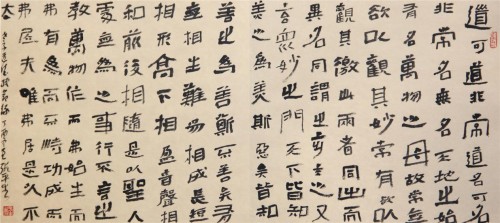 道可道非常道名可名
非常名無名天地之始
有名萬物之母故常無
欲以觀其妙常有欲以
觀其徼此兩者同出而
異名同謂之玄玄之又
玄眾妙之門天下皆知
美之為美斯惡矣皆知
善之為善斯不善矣有
無相生難易相成長短
相形高下相盈音聲相
和前後相隨是以聖人
處無為之事行不言之
教萬物作而弗始生而
弗有為而弗恃功成而
弗居夫唯弗居是以不
去